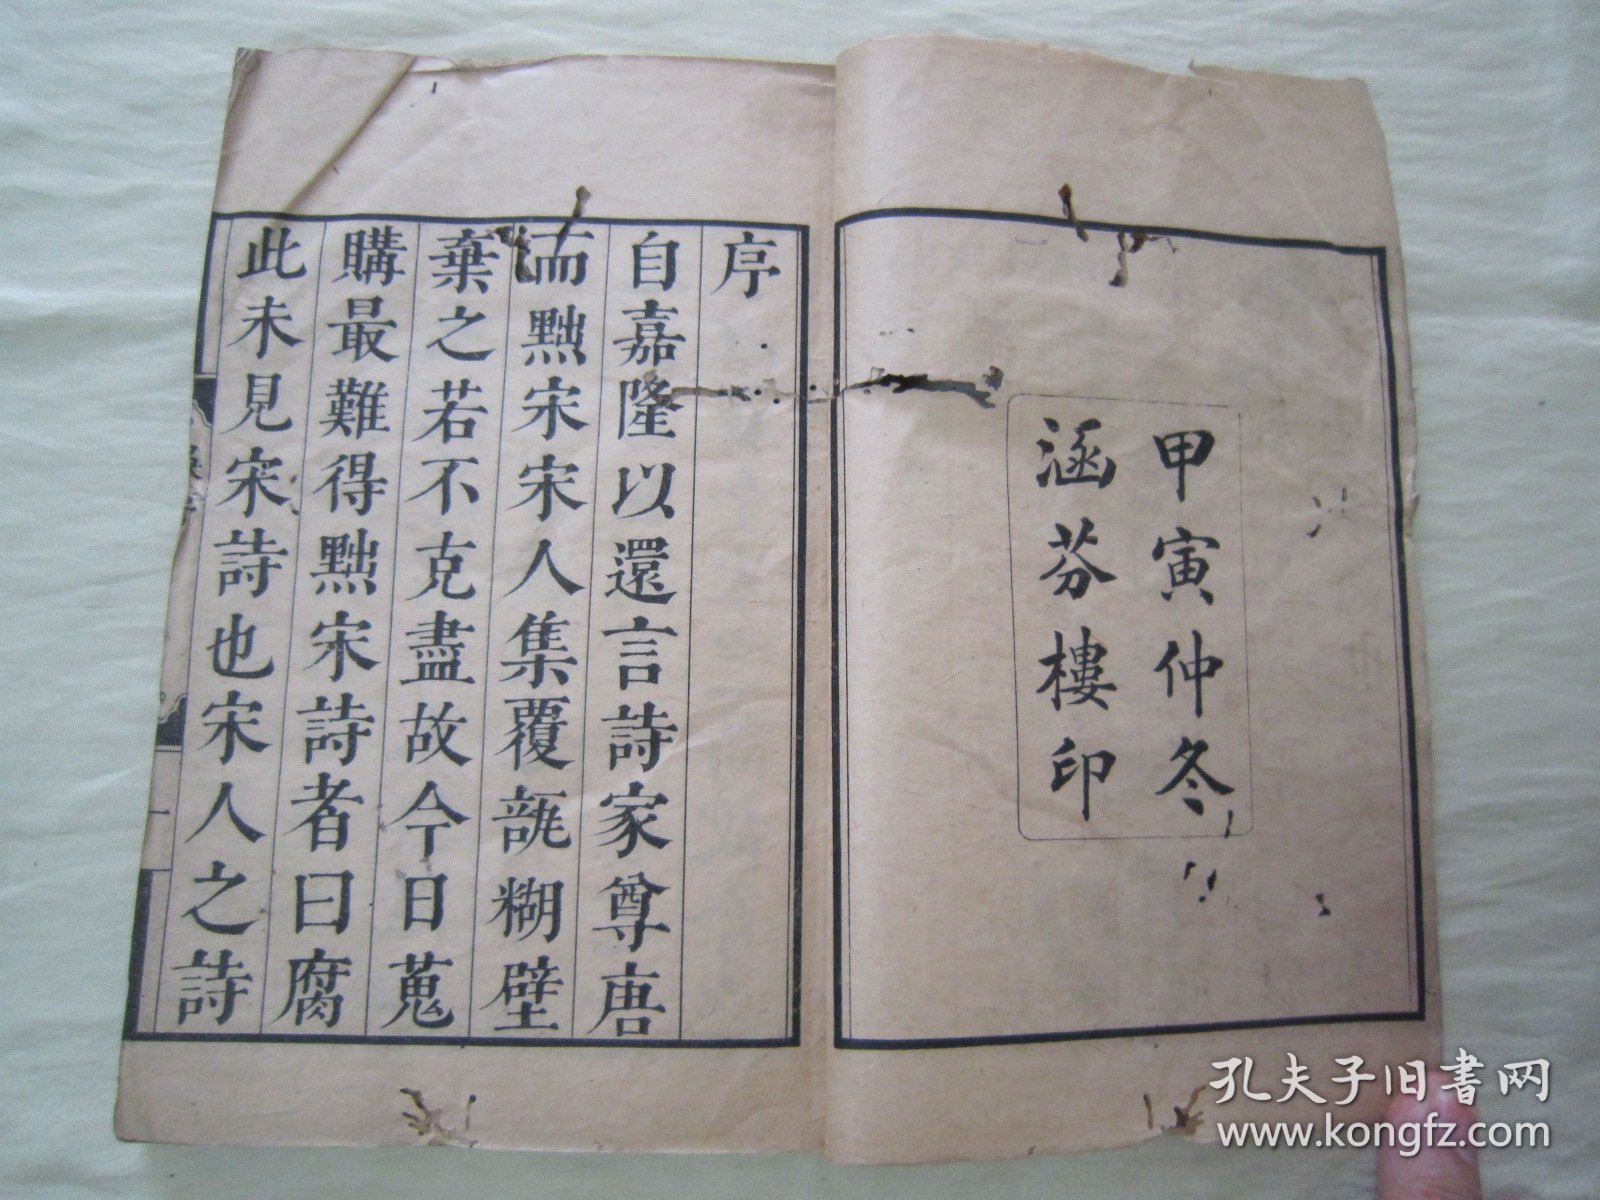 甲寅仲冬
涵芬樓印
序
自嘉隆以還言詩家尊唐
而黜宋宋人集覆瓿糊壁
棄之若不克盡故今日蒐
購最難得黜宋詩者曰腐
此未見宋詩也宋人之詩
一
孔夫子旧書网
www.kongfz.com